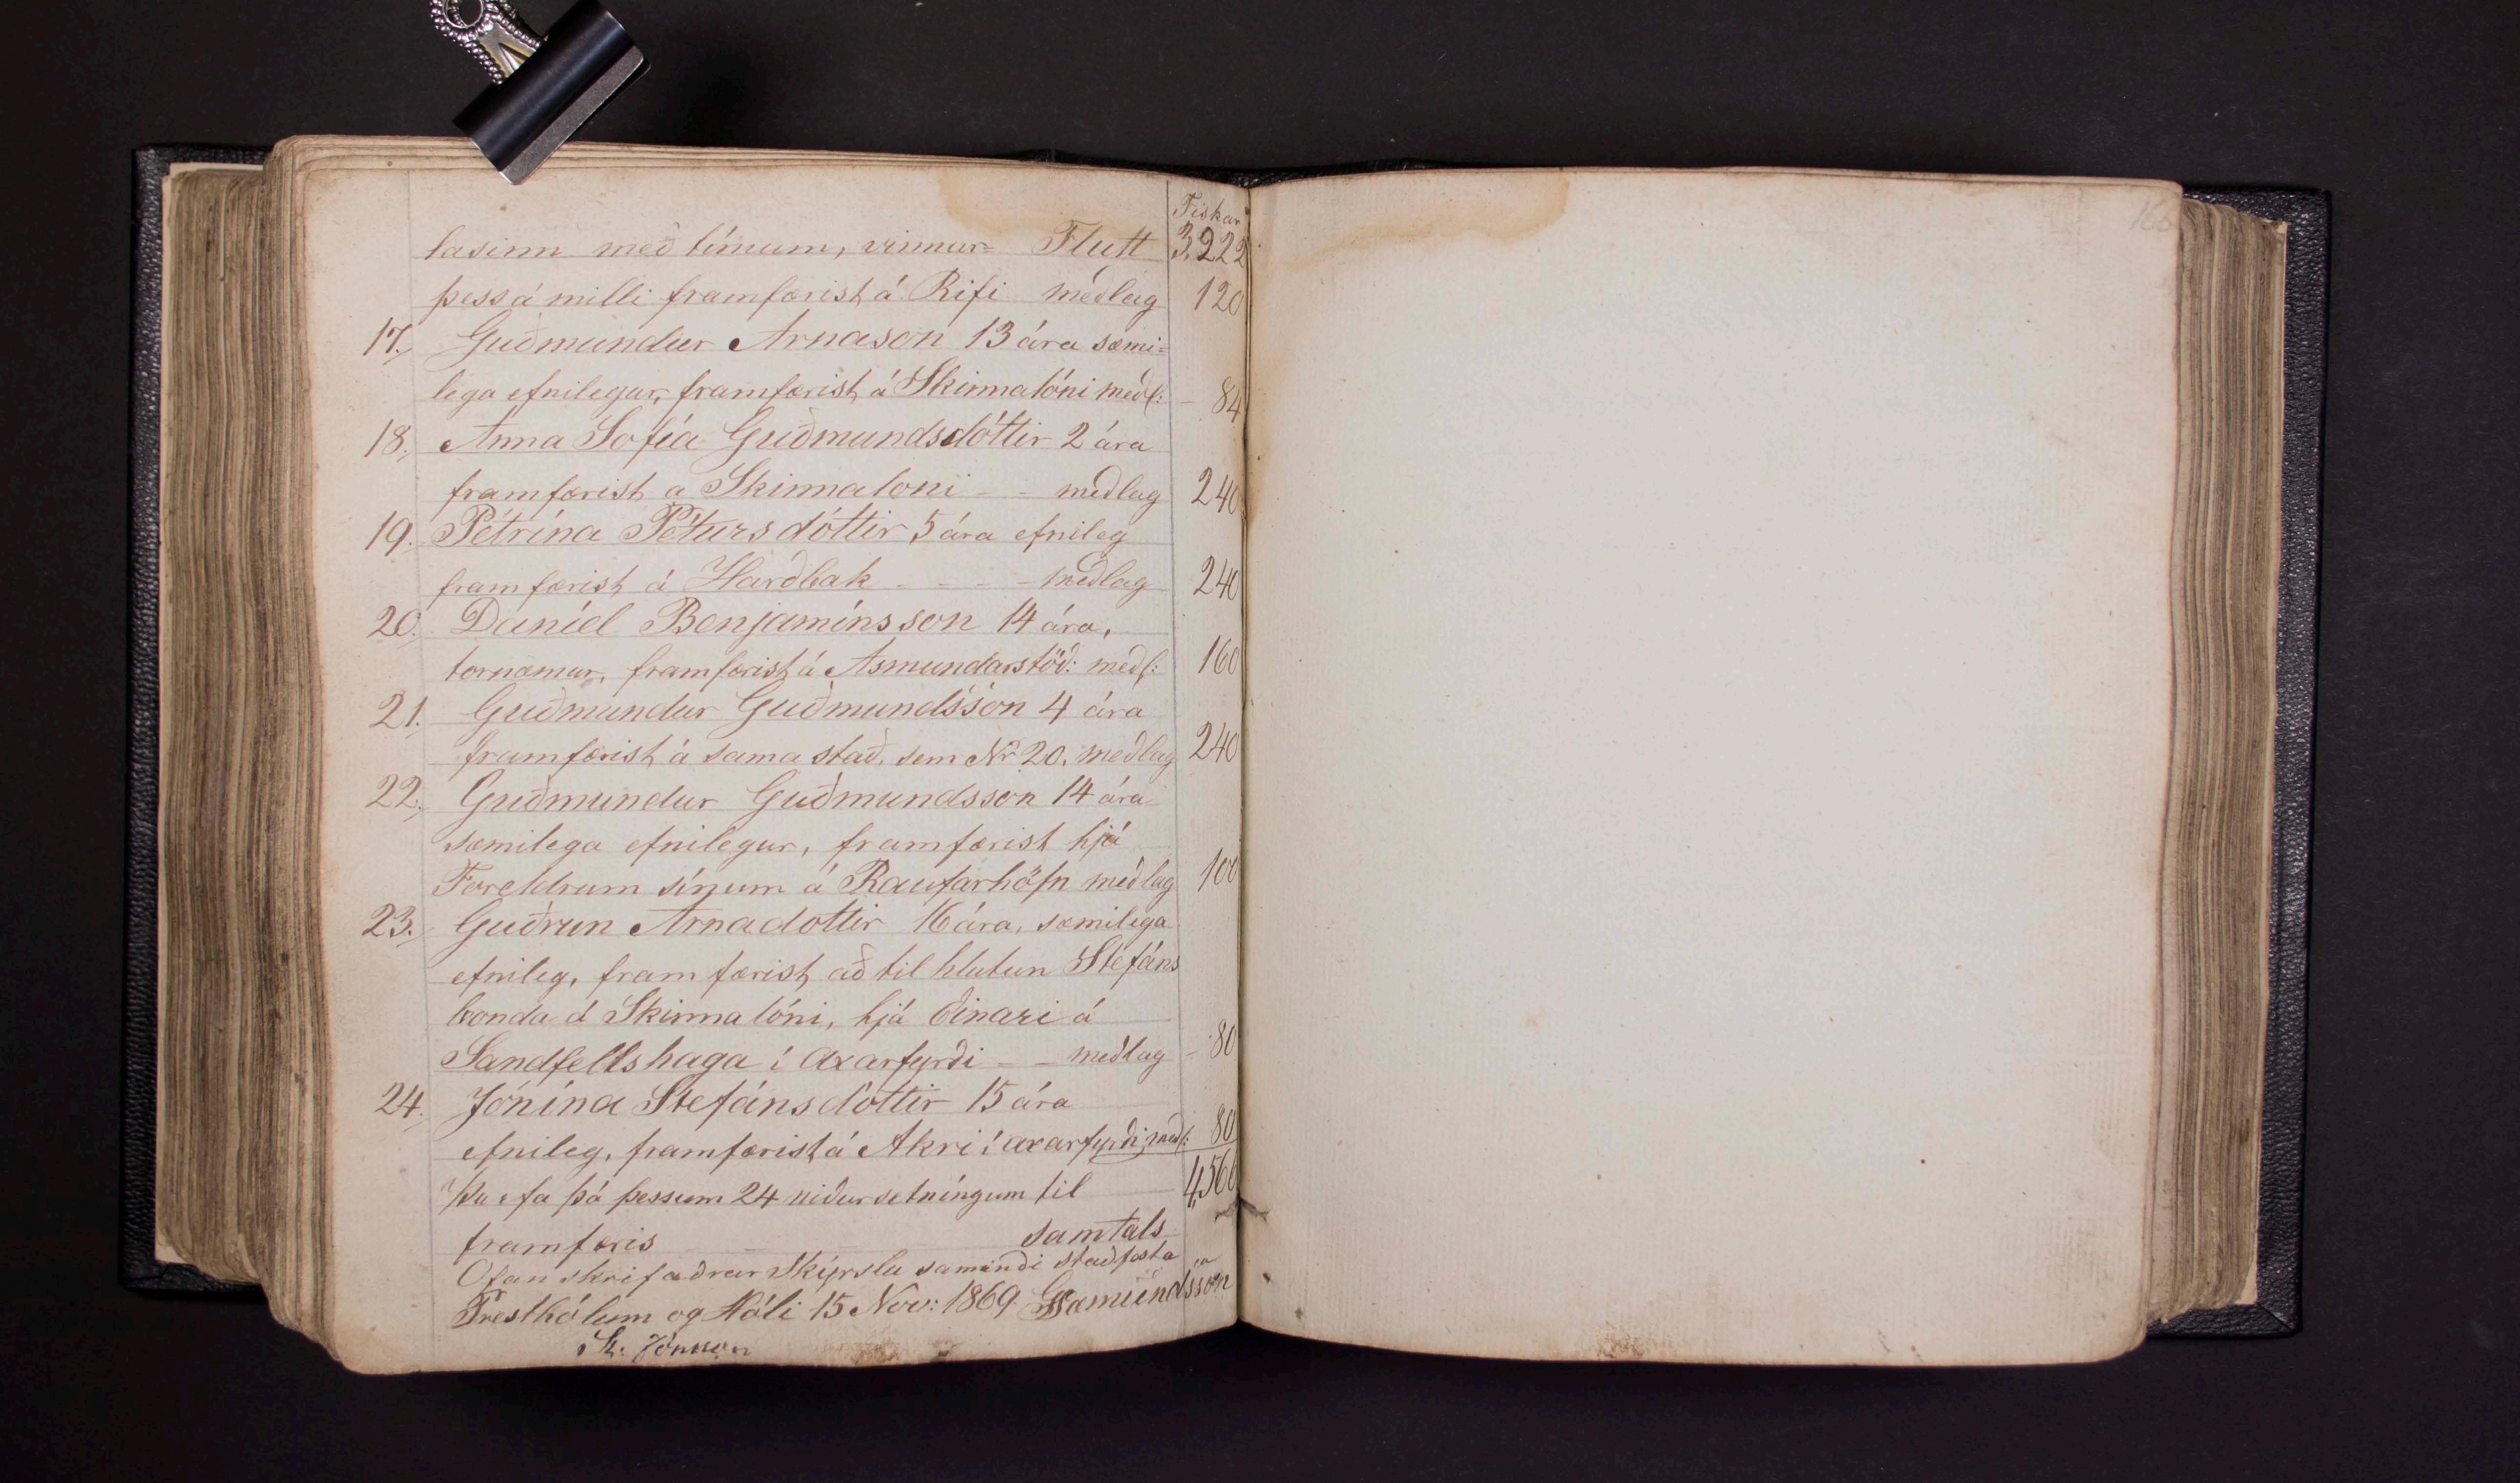 Fiskar
lasinn með tímum, vinnur= Flutt 3,222
þess á milli framfærist á Rifi meðlag 120
17. Guðmundur Arnason 13 ára sæmi=
lega efnilegur, framfærist á Skinnalóni meðl: - 84
18. Anna Sofía Guðmundsdóttir 2 ára
framfærist a Skinnaloni - - meðlag 240
19. Pétrína Pétursdóttir 5 ára efnileg
framfærist á Harðbak - - - - meðlag 240
20. Daníel Benjamínsson 14 ára,
tornæmur, framfærist á Asmundarstöð: meðl: 160
21. Guðmundur Guðmundsson 4 ára
framfærist á sama stað, sem Nr 20. meðlag 240
22. Guðmundur Guðmundsson 14 ára
sæmilega efnilegur, framfærist hjá
Foreldrum sínum á Raufarhöfn meðlag 100
23. Guðrun Arnadottir 16 ára, sæmilega
efnileg, framfærist að til hlutun Stefáns
bonda á Skinnalóni, hjá Einari á
Sandfellshaga í Axarfyrði - - meðlag - 80
24. Jónína Stefánsdóttir 15 ára
efnileg, framfærist á Akri í axarfyrði, meðl: 80
þu efa þá þessum 24 niðursetníngum til 4,566
framfæris samtals
Ofan skrifaðrar Skýrslu samandi staðfesta
Presthólum og Hóli 15 Nov: 1869. Sæmundsson
St. Jónsson
166